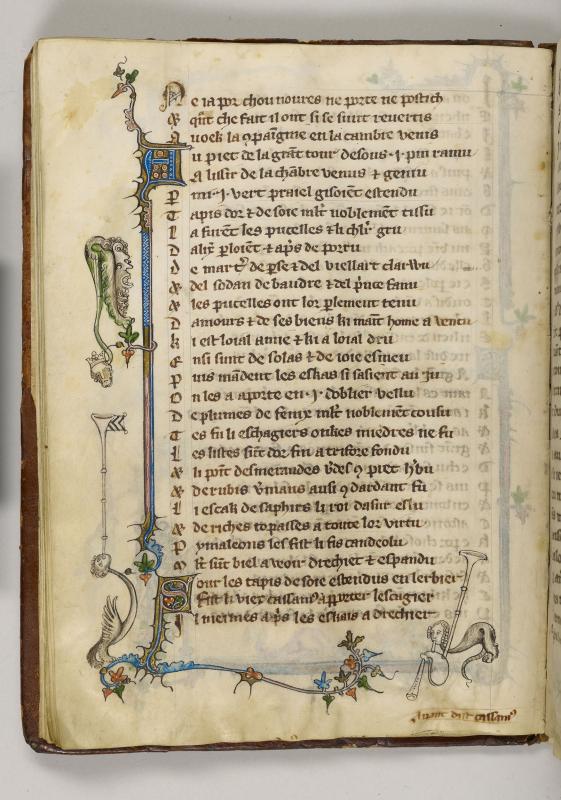 Ne ia por chou noures ne porte ne postich
& qñt che fait il ont si se sunt reuertis
A uoek la ɔpaĩgnie en la cambre uenis
Au piet de la grãt tour desous · i · pin ramu
A lissir de la chãbre uenus & gentu
Pmi · i · vert praiel gisoiẽt estendu
Tapis dor & de soie ml't noblemẽt tissu
La furẽt les pucelles & li chl'r gtu
D ploiẽt & ap's de
De mart' de pse & del viellart clarvu
& del sodan de baudre & del p'nce famu
& les pucelles ont lor plement tenu
Damours & de ses biens ki maĩt home a uencu
Ki est loial amie & ki a loial dru
Ensi sunt de solas & de ioie esmeu
Puis mãdent les eskas si sasient au iu
On les a aporte en · i · doblier vellu
De plumes de fenix ml't noblemẽt cousu
Tes fu li eschagiers onkes miedres ne fu
Les listes sũt dor fin a trifore fondu
& li põt desmeraudes v'des ɔ piet h'bu
& de rubis v'maus ausi ɔ dardant fu
Li eskak de saphirs li roi dasur eslu
& de riches topasses a toute lor virtu
Pymaleons les fist li fis candeolu
Ml't sũt biel a veoir drechiet & espandu
Sour les tapis de soie estendus en lerbier
Fist li viex cassan' aporter leskagier
Liuermés ap's les eskais a drechier
Auant dist cassan'